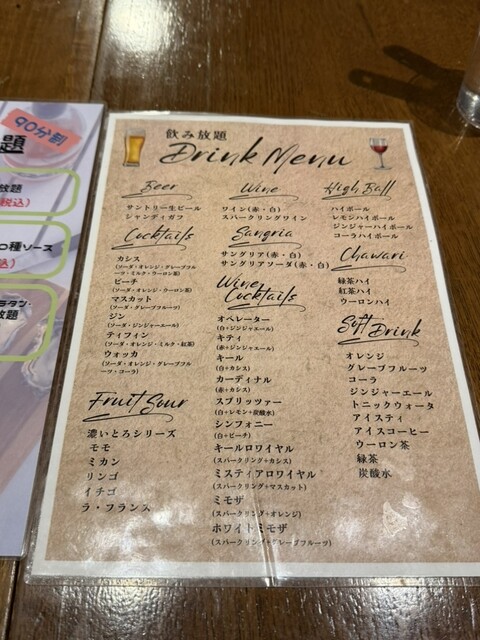 90分制
題
放題
税込)
つ種ソース
込)
ラタン・
放題
飲み放題
Drink Menu
Beer
サントリー生ビール
シャンディガフ
Cocktails
カシス
(ソーダ・オレンジ・グレープフルーツ・ミルク・ウーロン茶)
ピーチ
(ソーダ・オレンジ・ウーロン茶)
マスカット
(ソーダ・グレープフルーツ)
ジン
(ソーダ・ジンジャエール)
ティフィン
(ソーダ・オレンジ・ミルク・紅茶)
ウォッカ
(ソーダ・オレンジ・グレープフルーツ・コーラ)
Fruit Sour
濃いとろシリーズ
モモ
ミカン
リンゴ
イチゴ
ラ・フランス
Wine
ワイン(赤・白)
スパークリングワイン
Sangria
サングリア(赤・白)
サングリアソーダ(赤・白)
Wine
Cocktails
オペレーター
(白+ジンジャエール)
キティ
(赤+ジンジャエール)
キール
(白+カシス)
カーディナル
(赤+カシス)
スプリッツァー
(白+レモン+炭酸水)
シンフォニー
(白+ピーチ)
キールロワイヤル
(スパークリング+カシス)
ミスティアロワイヤル
(スパークリング+マスカット)
ミモザ
(スパークリング+オレンジ)
ホワイトミモザ
(スパークリング+グレープフルーツ)
High Ball
ハイボール
レモンハイボール
ジンジャーハイボール
コーラハイボール
Chawari
緑茶ハイ
紅茶ハイ
ウーロンハイ
Soft Drink
オレンジ
グレープフルーツ
コーラ
ジンジャーエール
トニックウォータ
アイスティ
アイスコーヒー
ウーロン茶
緑茶
炭酸水